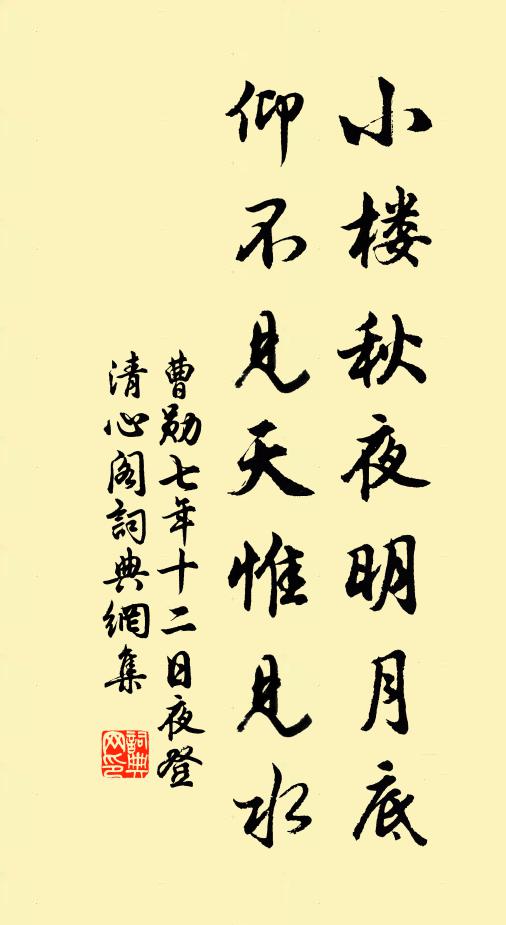 小楼秋夜明月底
仰不见天惟见水
曹勋七年十二日夜登
清心阁詞典網集
詞典网印